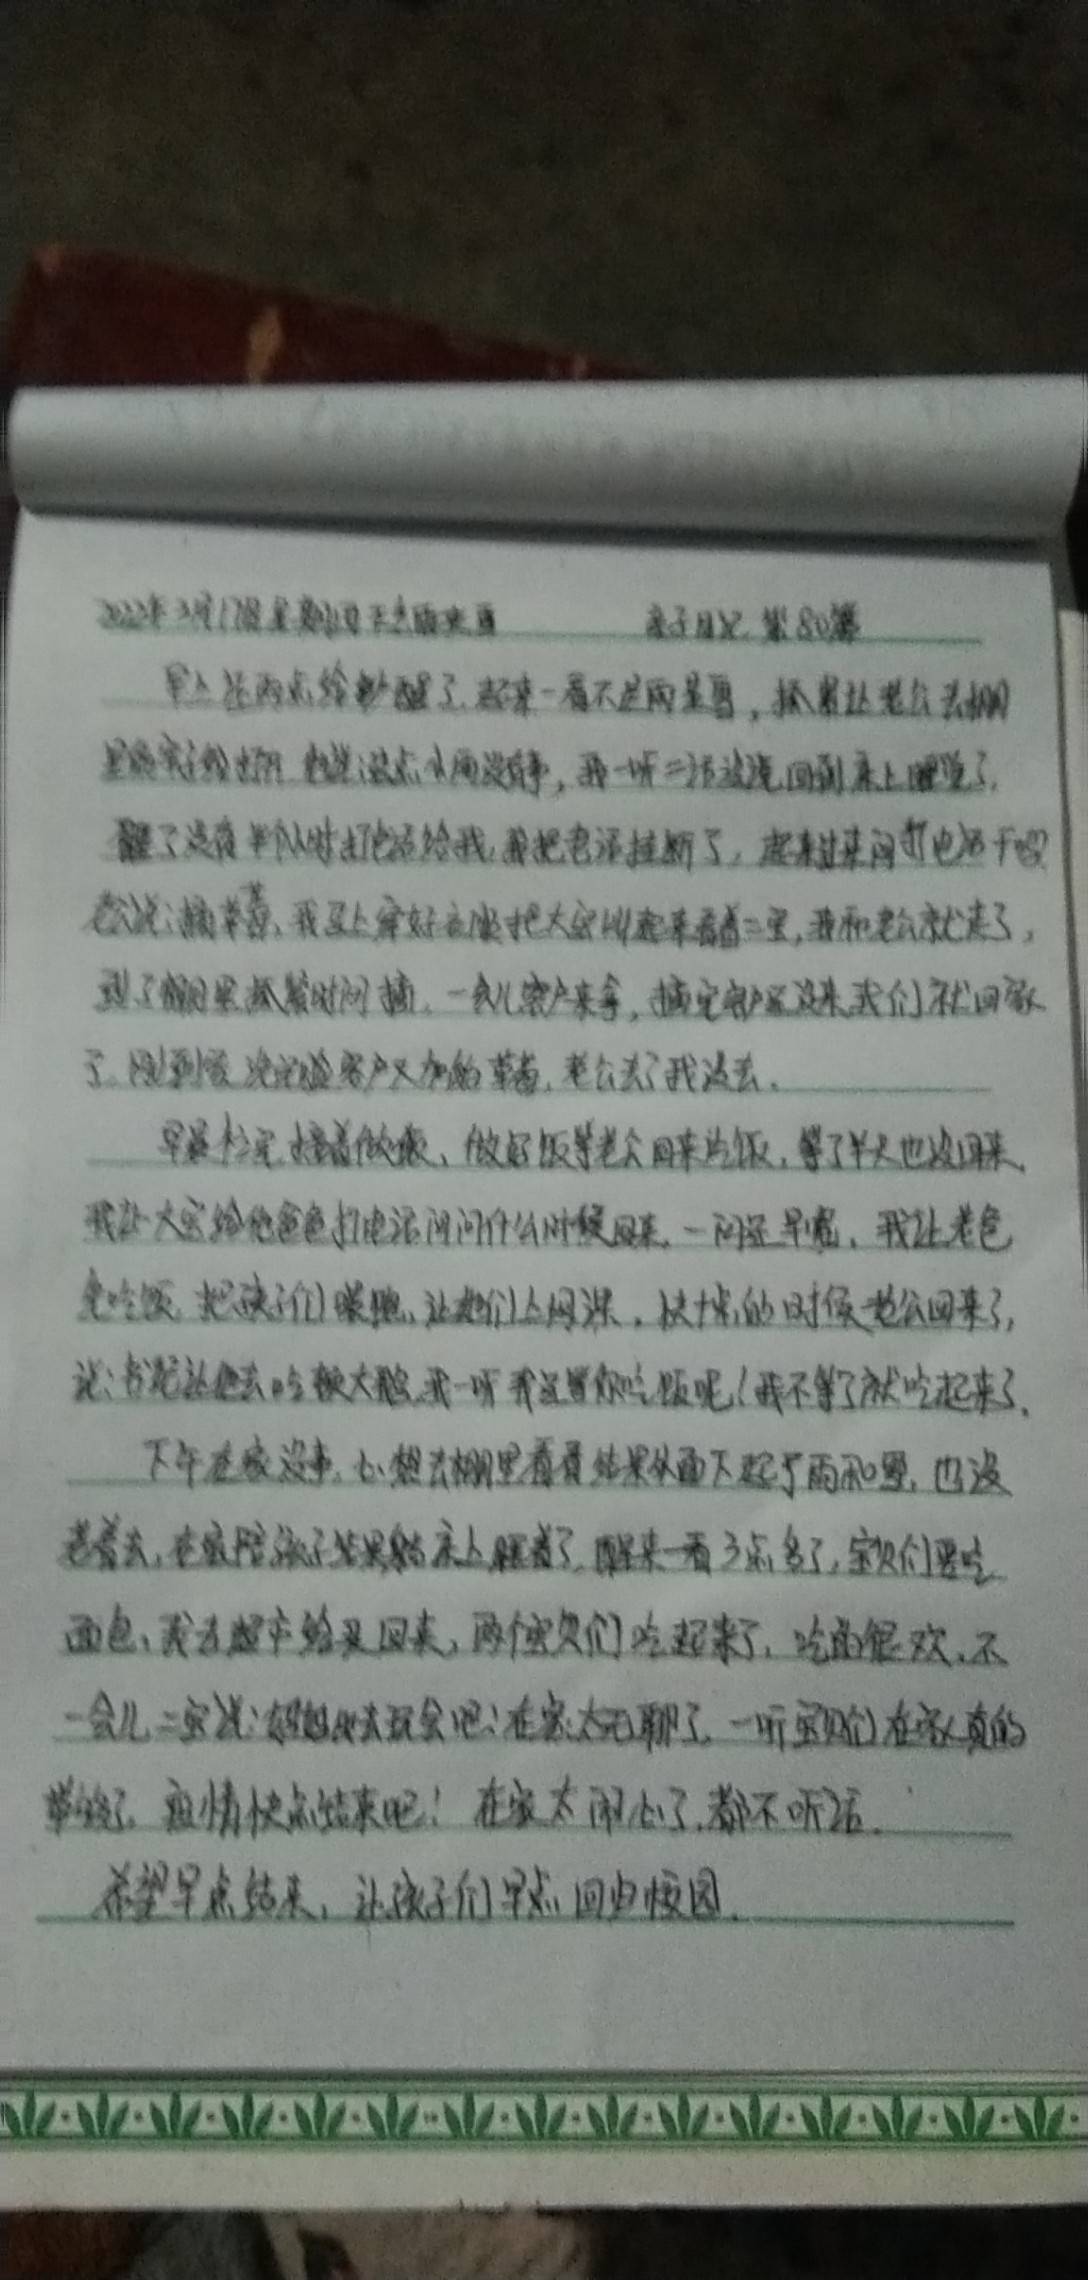 2022年3月17日星期四 下 雨夹雪 亲子日记 第80篇
早上 雨点给吵醒了,起来一看不是雨是雪,抓紧让老公去棚
说:这点小雨没事,我一听二话没说回到床上睡觉了.
没有半个小时打电话给我,我把电话挂断了,起来 问打电话干吗?
老公说:摘草莓,我马上穿好衣服把大宝叫起来看着二宝,我和老公就走了,
到了棚里抓紧时间摘,一会儿客户来拿,摘完客户还没来我们就回家
了,刚到家 客户又加的草莓,老公去了我没去.
接着做饭,做好饭等老公回来吃饭,等了半天也没回来,
我让大宝给他爸爸打电话问问什么时候回来,一问还早着,我让老爸
先吃饭,把孩子们 ,让她们上网课,快十点的时候老公回来了,
说: 让他去吃 我一听我还等你吃饭呢!我不等了就吃起来了.
下午在家没事,心想去棚里看看结果外面下起了雨和雪,也没
去,在家陪孩子结果躺床上睡着了,醒来一看3点多了,宝贝们要吃
面包,我去超市给买回来,两个宝贝们吃起来了,吃的很欢,不
一会儿二宝说: 去玩会吧!在家太无聊了,一听宝贝们在家真的
够了,疫情快点结束吧!在家太闹心了,都不听话.
希望早点结束,让孩子们早点回归校园.